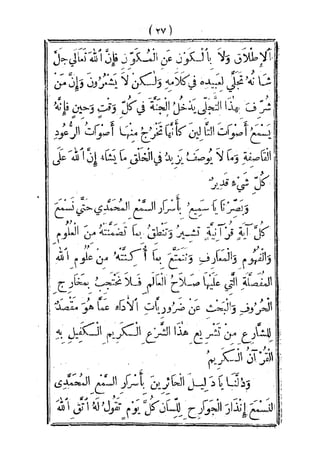 (٢٧)
الإطلاق ولا بالكون عن المكون فإن الله تعالى جل
شأنه تجلى لعبيده في كلامه ولكن لا يشعرون وإن من
شرف بهذا التجلى يدخل الجنة في كل وقت وحين فإنه
يسمع أصوات التالين كأنها تخرج منها أصوات الرعود
القاصفة وما لا يوصف يزيد في الخلق ما يشاء إن الله على
كل شيء قدير
وبصرنا يا سميع بأسرار السمع المحمدي حتى نسمع
كل آية قرآنية تشير وتنطق بما تضمنته من العلوم
والفهوم والمعارف ونتمتع بما أكنته من علوم الله
المفصلة التي عليها صلاح العالم فلا نحتجب بمخارج
الحروف والبحث عن ضروريات الأداء عما هو مقصد
للشارع من تشريع هذا الشرع الكريم الكفيل به
القرآن الكريم
ودلنا يا دليل الحائرين بأسرار السمع المحمدى
لنسمع إنذار الجوارح للسان كل يوم تقول له اتق الله